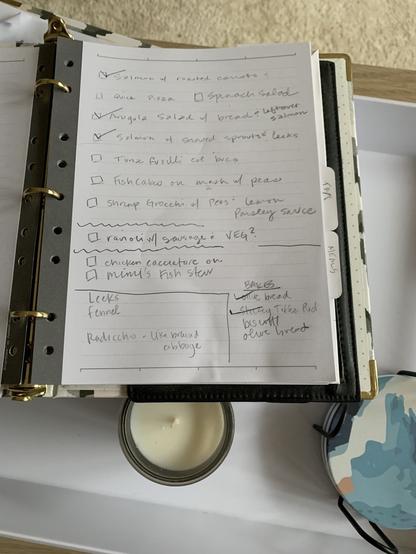 Salmon w/ roasted carrots &
Quick Pizza Spinach Salad
Arugula Salad w/ bread & leftover
salmon
Salmon w/ shaved sprouts & leeks
Tuna Fusilli
Fishcakes on mash w/ peas
Shrimp Gnocchi w/ Peas & Lemon
Parsley Sauce
ravioli w/ sausage & VEG?
chicken cacciatore on
Mimi's Fish Stew
Leeks
Fennel
Radicchio - like braised
cabbage
BAKES
olive bread
Sticky Toffee Pud
biscuits
olive bread
MENUS